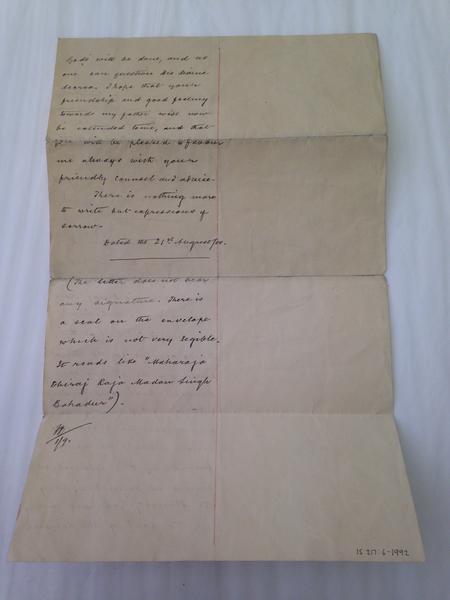 God's will be done, and no
one can question His Divine
decree. I hope that your
friendship and good feeling
towards my father will now
be extended to me, and that
you will be pleased to favour
me always with your
friendly counsel and advice.
There is nothing more
to write but expressions of
sorrow.
Dated the 21st August/00.
(The letter does not bear
any signature. There is
a seal on the envelope
which is not very legible.
It reads like "Maharaja
Dhiraj Raja Madan Singh
Bahadur").
1/9.
IS 217:6-1992